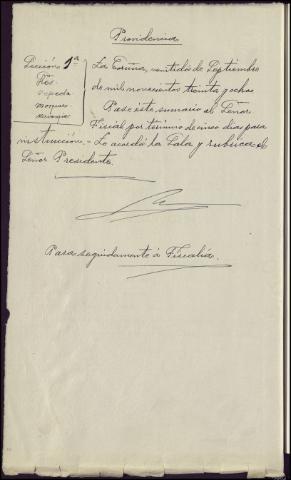 Providencia
Sección 1ª
Sres.
Cepeda
La Coruña, veintidos de Septiembre
de mil novecientos treinta y ocho.
Pase este sumario al Señor
Fiscal por término de cinco dias para
instrucción.- Lo acordó la Sala y rubrica el
Señor Presidente.
Pasa seguidamente á Fiscalía.